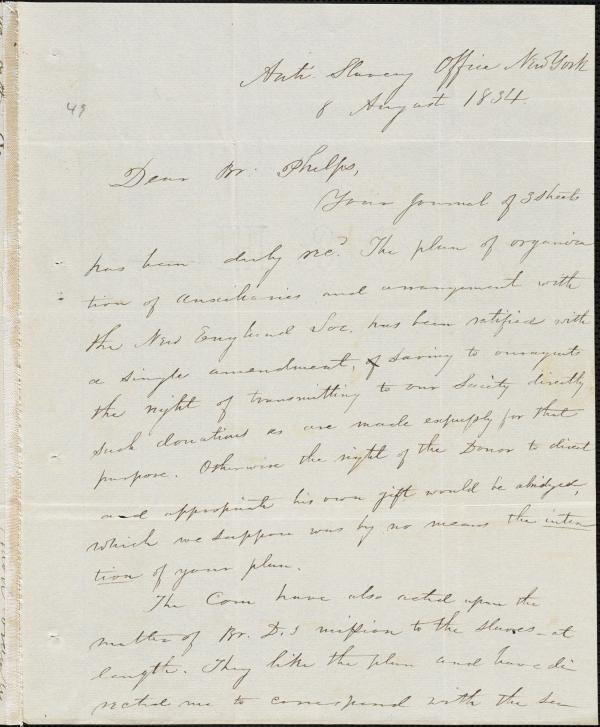 Anti Slavery Office New York
8 August 1834.
49
Dear Br. Phelps,
Your Journal of 3 sheets
has been duly rec.d The plan of organiza
tion of auxiliaries and arrangement with
the New England Soc. has been ratified with
a single amendment, saving to our agents
the right of transmitting to our Society directly
such donations as are made expressly for that
purpose. Otherwise the right of the Donor to direct
and appropriate his own gift would be abridged,
which we suppose was by no means the inten
tion of your plan.
The Com have also acted upon the
matter of Br. D.s mission to the slaves at
length. They like the plan and have di
rected me to correspond with the Sec